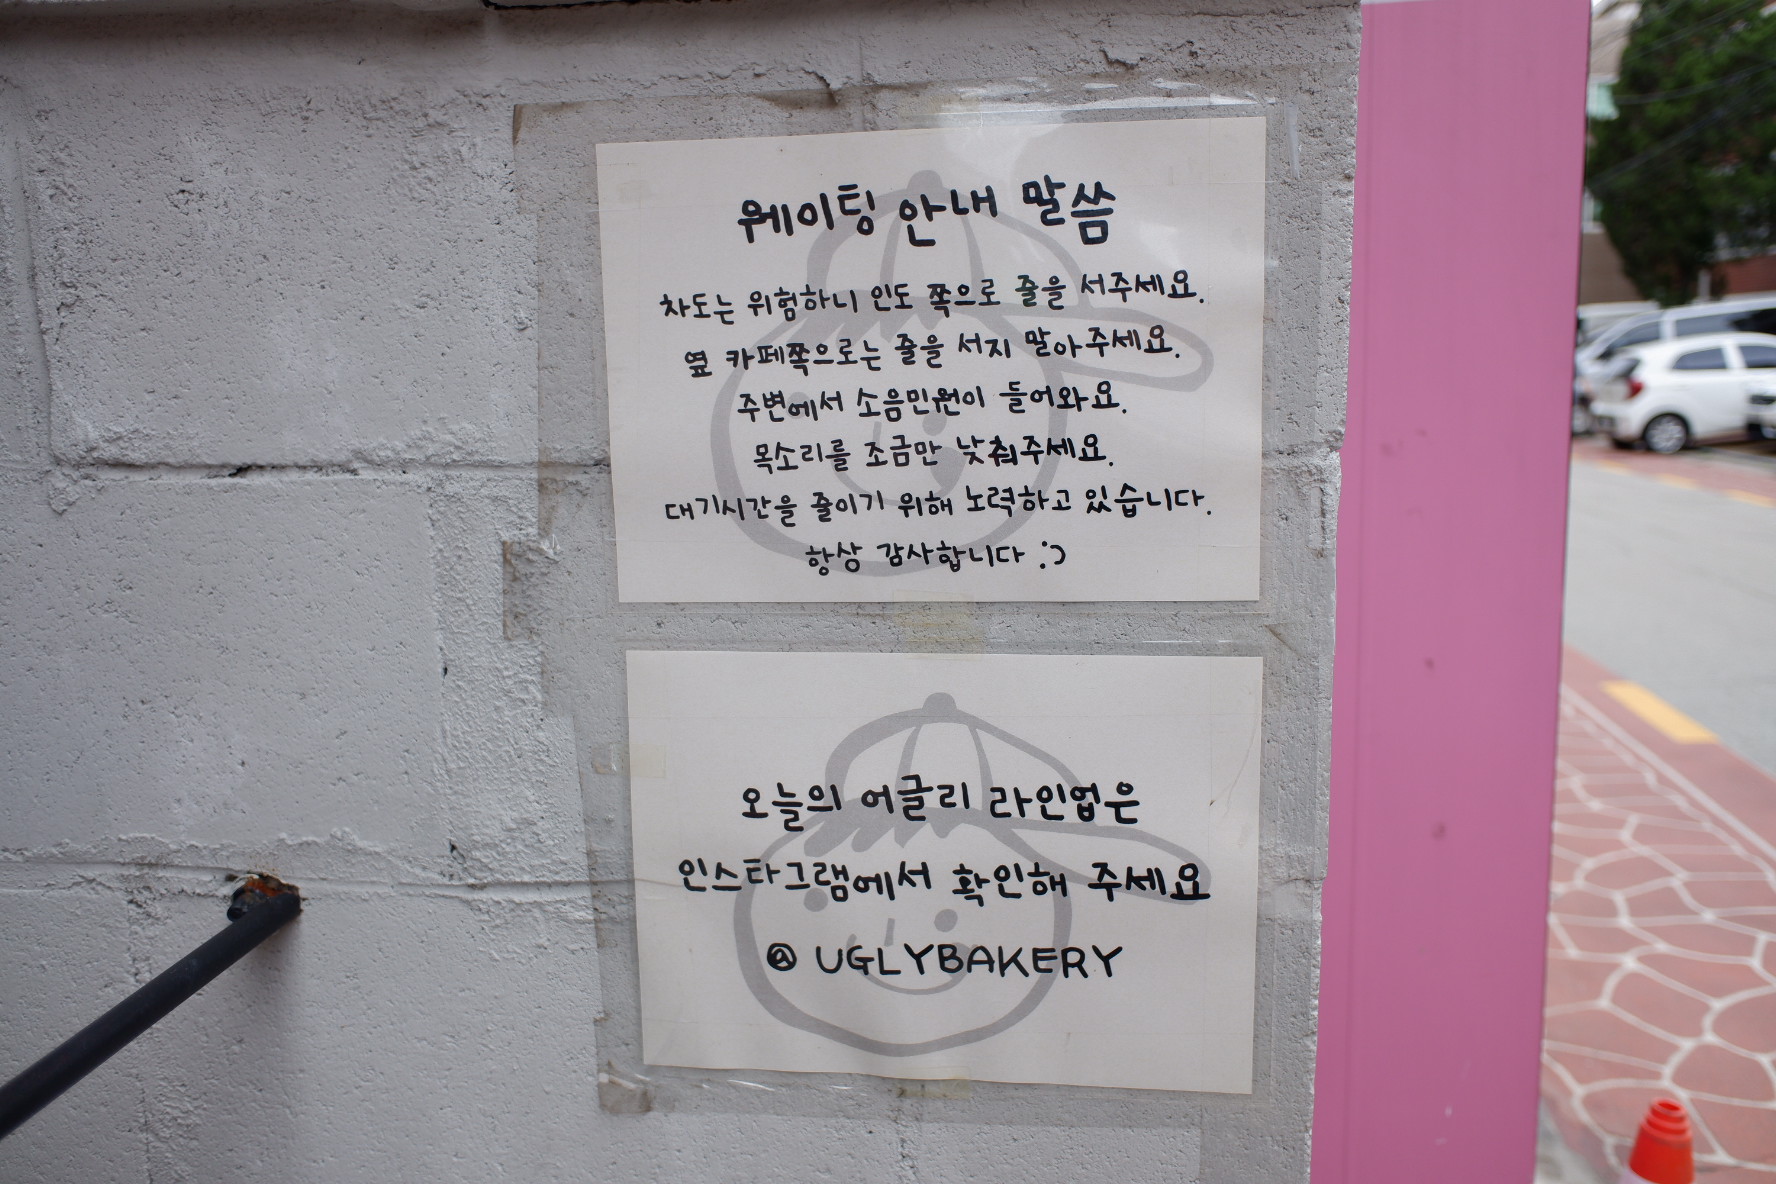 웨이팅 안내 말씀
차도는 위험하니 인도 쪽으로 줄을 서주세요.
옆 카페쪽으로는 줄을 서지 말아주세요.
주변에서 소음민원이 들어와요.
목소리를 조금만 낮춰주세요.
대기시간을 줄이기 위해 노력하고 있습니다.
항상 감사합니다 :)
오늘의 어글리 라인업은
인스타그램에서 확인해 주세요
@ UGLYBAKERY